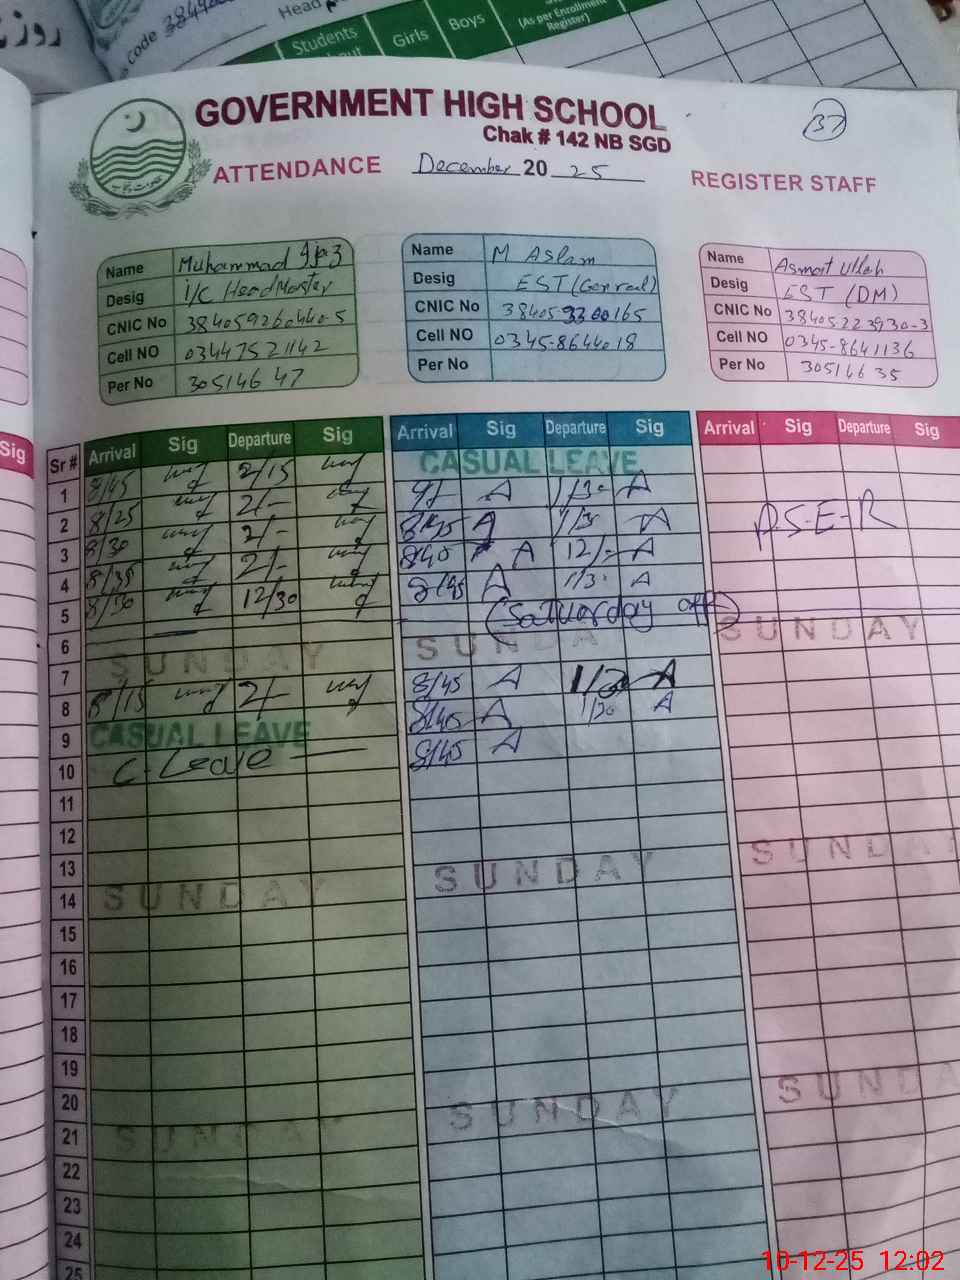 Code
Head
Students
Girls
Boys
(As per Enrollment
Register)
GOVERNMENT HIGH SCHOOL
Chak # 142 NB SGD
37
ATTENDANCE December 20 25 REGISTER STAFF
Name Muhammad Ijaz
Desig i/C HeadMaster
CNIC No 3840592604405
Cell NO 03447521142
Per No 30514647
Name M Aslam
Desig EST (General)
CNIC No 384053300165
Cell NO 0345-8644018
Per No
Name Asmat Ullah
Desig EST (DM)
CNIC No 38405223930-3
Cell NO 0345-8641136
Per No 30514635
Sig
Sr # Arrival Sig Departure Sig Arrival Sig Departure Sig Arrival Sig Departure Sig
CASUAL LEAVE
1 8/45 2/15 9/- A 1/30 A
2 8/25 2/- 8/45 A 1/30 A P.S.E.R
3 8/30 2/- 8/40 A 12/- A
4 8/35 2/- 8/45 A 1/30 A
5 8/30 12/30 (Satuarday off)
6 SUNDAY SUNDAY
7 SUNDAY
8 8/15 2/- 8/45 A 1/30 A
9 CASUAL LEAVE 8/45 A 1/30 A
10 C-Leave 8/45 A
11
12
13 SUNDAY SUNDAY
14 SUNDAY
15
16
17
18
19
20 SUNDAY SUNDAY
21 SUNDAY
22
23
24
25
10-12-25 12:02